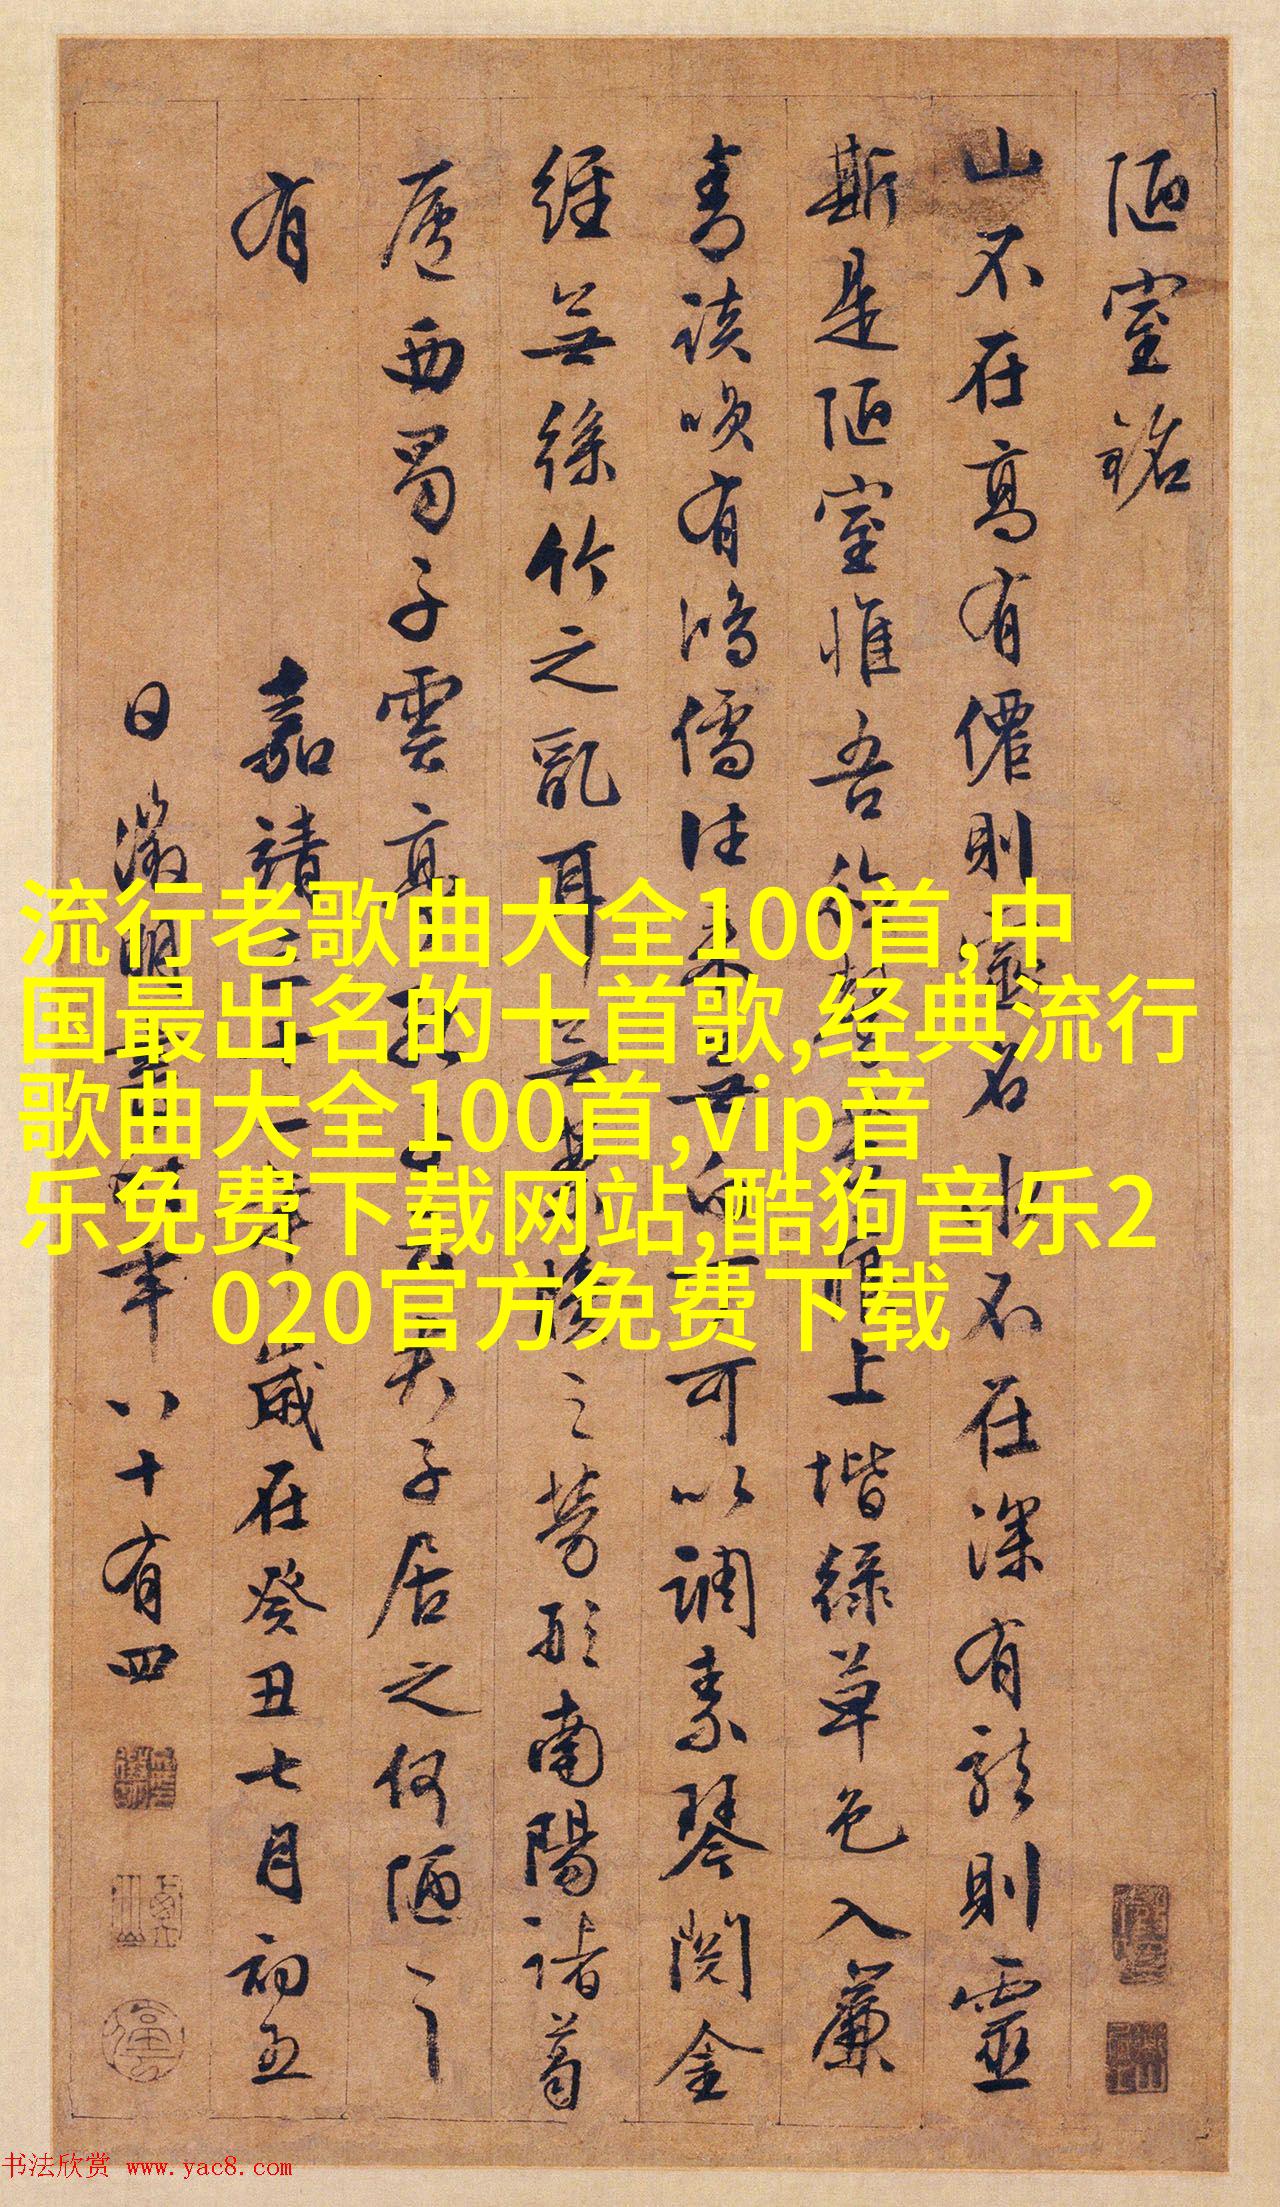 陋室銘
山不在高有僊則名水不在深有龍則靈
斯是陋室惟吾德馨苔痕上堦綠草色入簾
青談咲有鴻儒往來無白丁可以調素琴閱金
經無絲竹之亂耳無案牘之勞形南陽諸葛
廬西蜀子雲亭夫子居之何陋之
有 嘉靖三十二年歲在癸丑七月初五
日徵明書時年八十有四
流行老歌曲大全100首,中
国最出名的十首歌,经典流行
歌曲大全100首,vip音
乐免费下载网站,酷狗音乐2
020官方免费下载
书法欣赏 www.yac8.com